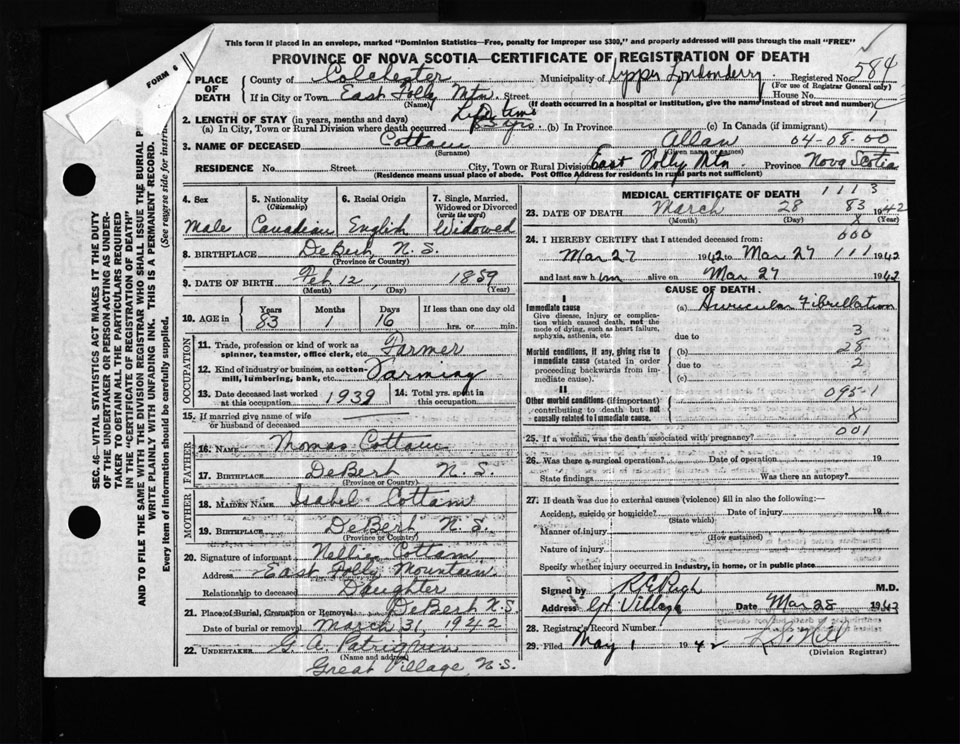 This form if placed in an envelope, marked "Dominion Statistics—Free, penalty for improper use $300," and properly addressed will pass through the mail "FREE"
PROVINCE OF NOVA SCOTIA—CERTIFICATE OF REGISTRATION OF DEATH
FORM 6
1. PLACE OF DEATH County of Colchester Municipality of Upper Londonderry Registered No. 584
(For use of Registrar General only)
If in City or Town East Folly Mtn. Street House No.
(Name) (If death occurred in a hospital or institution, give the name instead of street and number)
2. LENGTH OF STAY (in years, months and days) Life time 1
(a) In City, Town or Rural Division where death occurred 83 yrs. (b) In Province (c) In Canada (if immigrant)
3. NAME OF DECEASED Cottam Allan 04-08-00
(Surname) (Given name or names)
RESIDENCE No. Street City, Town or Rural Division East Folly Mtn Province Nova Scotia
(Residence means usual place of abode. Post Office Address for residents in rural parts not sufficient)
4. Sex 5. Nationality (Citizenship) 6. Racial Origin 7. Single, Married, Widowed or Divorced (write the word)
Male Canadian English Widowed
8. BIRTHPLACE DeBert, N.S.
(Province or Country)
9. DATE OF BIRTH Feb 12, 1859
(Month) (Day) (Year)
10. AGE in Years Months Days If less than one day old
83 1 16 hrs. or min.
OCCUPATION
11. Trade, profession or kind of work as spinner, teamster, office clerk, etc. Farmer
12. Kind of industry or business, as cotton-mill, lumbering, bank, etc. Farming
13. Date deceased last worked at this occupation 1939 14. Total yrs. spent in this occupation
15. If married give name of wife or husband of deceased
FATHER
16. NAME Thomas Cottam
17. BIRTHPLACE DeBert N.S.
(Province or Country)
MOTHER
18. MAIDEN NAME Isabel Cottam
19. BIRTHPLACE DeBert N.S.
(Province or Country)
20. Signature of informant Nellie Cottam
Address East Folly Mountain
Relationship to deceased Daughter
21. Place of Burial, Cremation or Removal DeBert N.S.
Date of burial or removal March 31, 1942
22. UNDERTAKER G. A. Patriquin
(Name and address)
Great Village N.S.
MEDICAL CERTIFICATE OF DEATH 1113
23. DATE OF DEATH March 28 83 1942
(Month) (Day) X (Year)
24. I HEREBY CERTIFY that I attended deceased from: 000
Mar 27 1942 to Mar 27 111 1942
and last saw him alive on Mar 27 1942
CAUSE OF DEATH
I
Immediate cause (a) Auricular Fibrillation
Give disease, injury or complication which caused death, not the mode of dying, such as heart failure, asphyxia, asthenia, etc.
due to 3
Morbid conditions, if any, giving rise to immediate cause (stated in order proceeding backwards from immediate cause). (b) 28
due to 2
(c)
II
Other morbid conditions (if important) contributing to death but not causally related to immediate cause. 095-1
X
25. If a woman, was the death associated with pregnancy? 001
26. Was there a surgical operation? Date of operation 19
State findings Was there an autopsy?
27. If death was due to external causes (violence) fill in also the following:—
Accident, suicide or homicide? Date of injury 19
(State which)
Manner of injury
(How sustained)
Nature of injury
Specify whether injury occurred in industry, in home, or in public place
Signed by M.D.
Address Gt. Village Date Mar 28 1942
28. Registrar's Record Number
29. Filed May 1 1942
(Division Registrar)
SEC. 46—VITAL STATISTICS ACT MAKES IT THE DUTY
OF THE UNDERTAKER OR PERSON ACTING AS UNDER-
TAKER TO OBTAIN ALL THE PARTICULARS REQUIRED
IN THE "CERTIFICATE OF REGISTRATION OF DEATH"
AND TO FILE THE SAME WITH THE DIVISION REGISTRAR WHO SHALL ISSUE THE BURIAL
WRITE PLAINLY WITH UNFADING INK. THIS IS A PERMANENT RECORD.
Every item of information should be carefully supplied. (See reverse side for